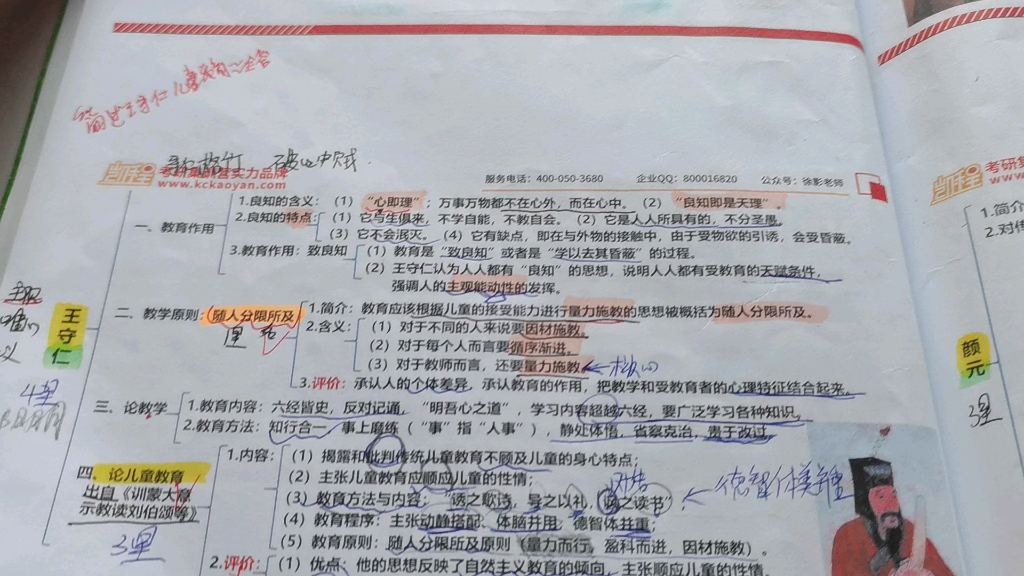 简述王守仁儿童教育
破心中贼
考研集训营实力品牌
www.kckaoyan.com
服务电话：400-050-3680 企业QQ：800016820 公众号：徐影老师
考研集
www
王守仁
4星
一、教育作用
1.良知的含义：（1）“心即理”；万事万物都不在心外，而在心中。（2）“良知即是天理”。
2.良知的特点：（1）它与生俱来，不学自能，不教自会。（2）它是人人所具有的，不分圣愚。
（3）它不会泯灭。（4）它有缺点，即在与外物的接触中，由于受物欲的引诱，会受昏蔽。
3.教育作用：致良知
（1）教育是“致良知”或者是“学以去其昏蔽”的过程。
（2）王守仁认为人人都有“良知”的思想，说明人人都有受教育的天赋条件，
强调人的主观能动性的发挥。
二、教学原则：随人分限所及
1.简介：教育应该根据儿童的接受能力进行量力施教的思想被概括为随人分限所及。
2.含义：
（1）对于不同的人来说要因材施教。
（2）对于每个人而言要循序渐进。
（3）对于教师而言，还要量力施教。
3.评价：承认人的个体差异，承认教育的作用，把教学和受教育者的心理特征结合起来。
三、论教学
1.教育内容：六经皆史，反对记诵，“明吾心之道”，学习内容超越六经，要广泛学习各种知识。
2.教育方法：知行合一，事上磨练（“事”指“人事”），静处体悟，省察克治，贵于改过。
四、论儿童教育
出自《训蒙大意
示教读刘伯颂等》
3星
1.内容：
（1）揭露和批判传统儿童教育不顾及儿童的身心特点；
（2）主张儿童教育应顺应儿童的性情；
（3）教育方法与内容：“诱之歌诗，导之以礼，讽之读书”；
德智体美
（4）教育程序：主张动静搭配、体脑并用；德智体并重；
（5）教育原则：随人分限所及原则（量力而行，盈科而进，因材施教）。
2.评价：
（1）优点：他的思想反映了自然主义教育的倾向，主张顺应儿童的性情。
1.简介
2.对传
颜元
3星